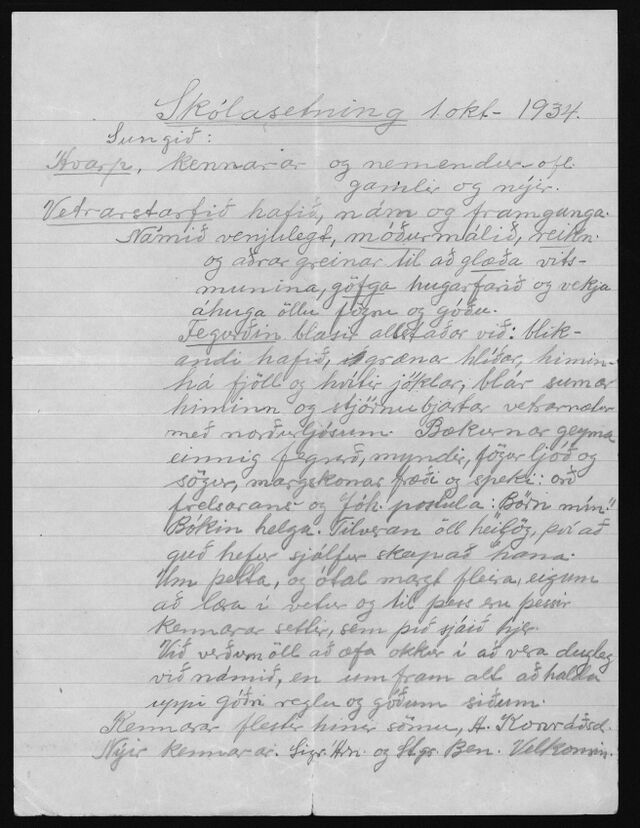 Skólasetning 1. okt - 1934.
Sungið:
Hvarp, kennarar og nemendur
gamlir og nýir.
Vetrarstarfið hafið, nám og framganga.
Námið venjulegt, móðurmálið, reikn.
og aðrar greinar til að glæða vits-
munina, göfga hugarfarið og vekja
áhuga öllu fögru og góðu.
Fegurðin blasir allstaðar við: blik-
andi hafið, grænar hlíðar, himin-
há fjöll og hvítir jöklar, blár sumar
himinn og stjörnubjartar vetrarnætur
með norðurljósum. Bækurnar geyma
einnig fegurð, myndir, fögur ljóð og
sögur, margskonar fræði og speki: orð
frelsarans og Jóh. postula: Börn mín!"
Bókin helga. Tilveran öll heilög, því að
guð hefur sjálfur skapað hana.
Um þetta, og ótal margt fleira, eigum
að læra í vetur og til þess eru þessir
kennarar settir, sem þið sjáið hjer.
Við verðum öll að æfa okkur í að vera dugleg
við námið, en umfram alt að halda
uppi góðri reglu og góðum siðum.
Kennarar flestir hinir sömu, A. Konráðsd.
Nýir kennarar. Sigr. Arn. og Stgr. Ben. Velkomin.